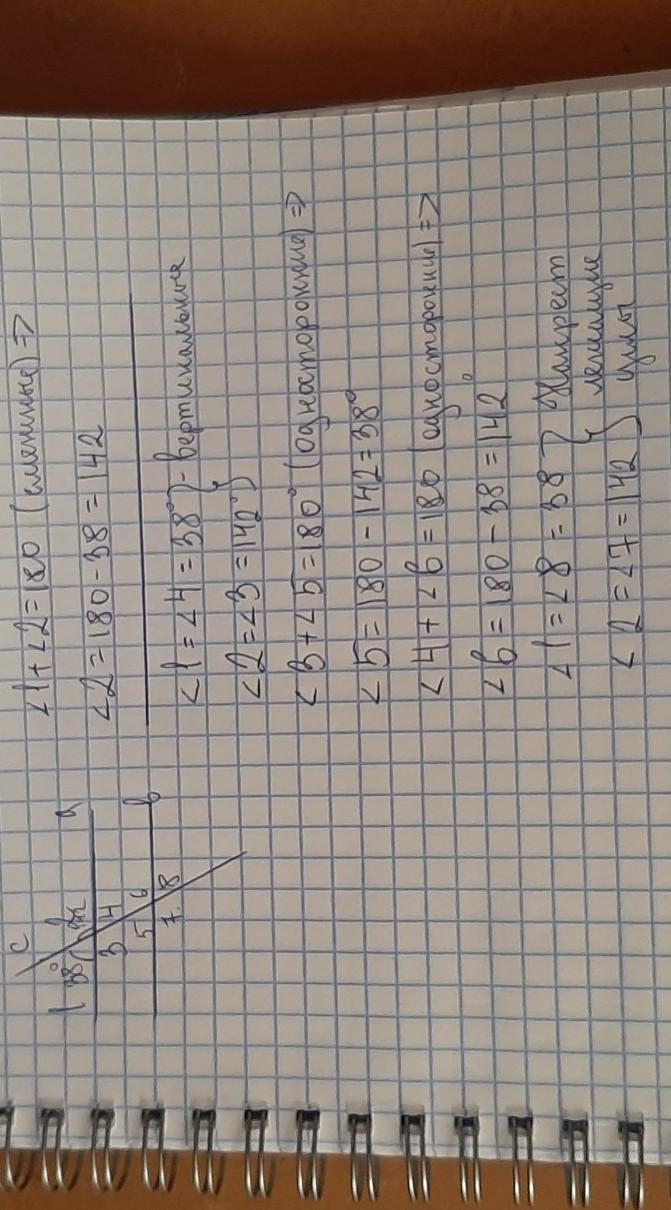 c
1 38° 2 a
3 4
5 6 b
7 8
<1+<2=180 (смежные) =>
<2=180-38=142
<1=<4=38° } - вертикальные
<2=<3=142° }
<3+<5=180° (односторонние) =>
<5=180-142=38°
<4+<6=180 (односторонние) =>
<6=180-38=142°
<1=<8=38 } Накрест
лежащие
<2=<7=142 } углы